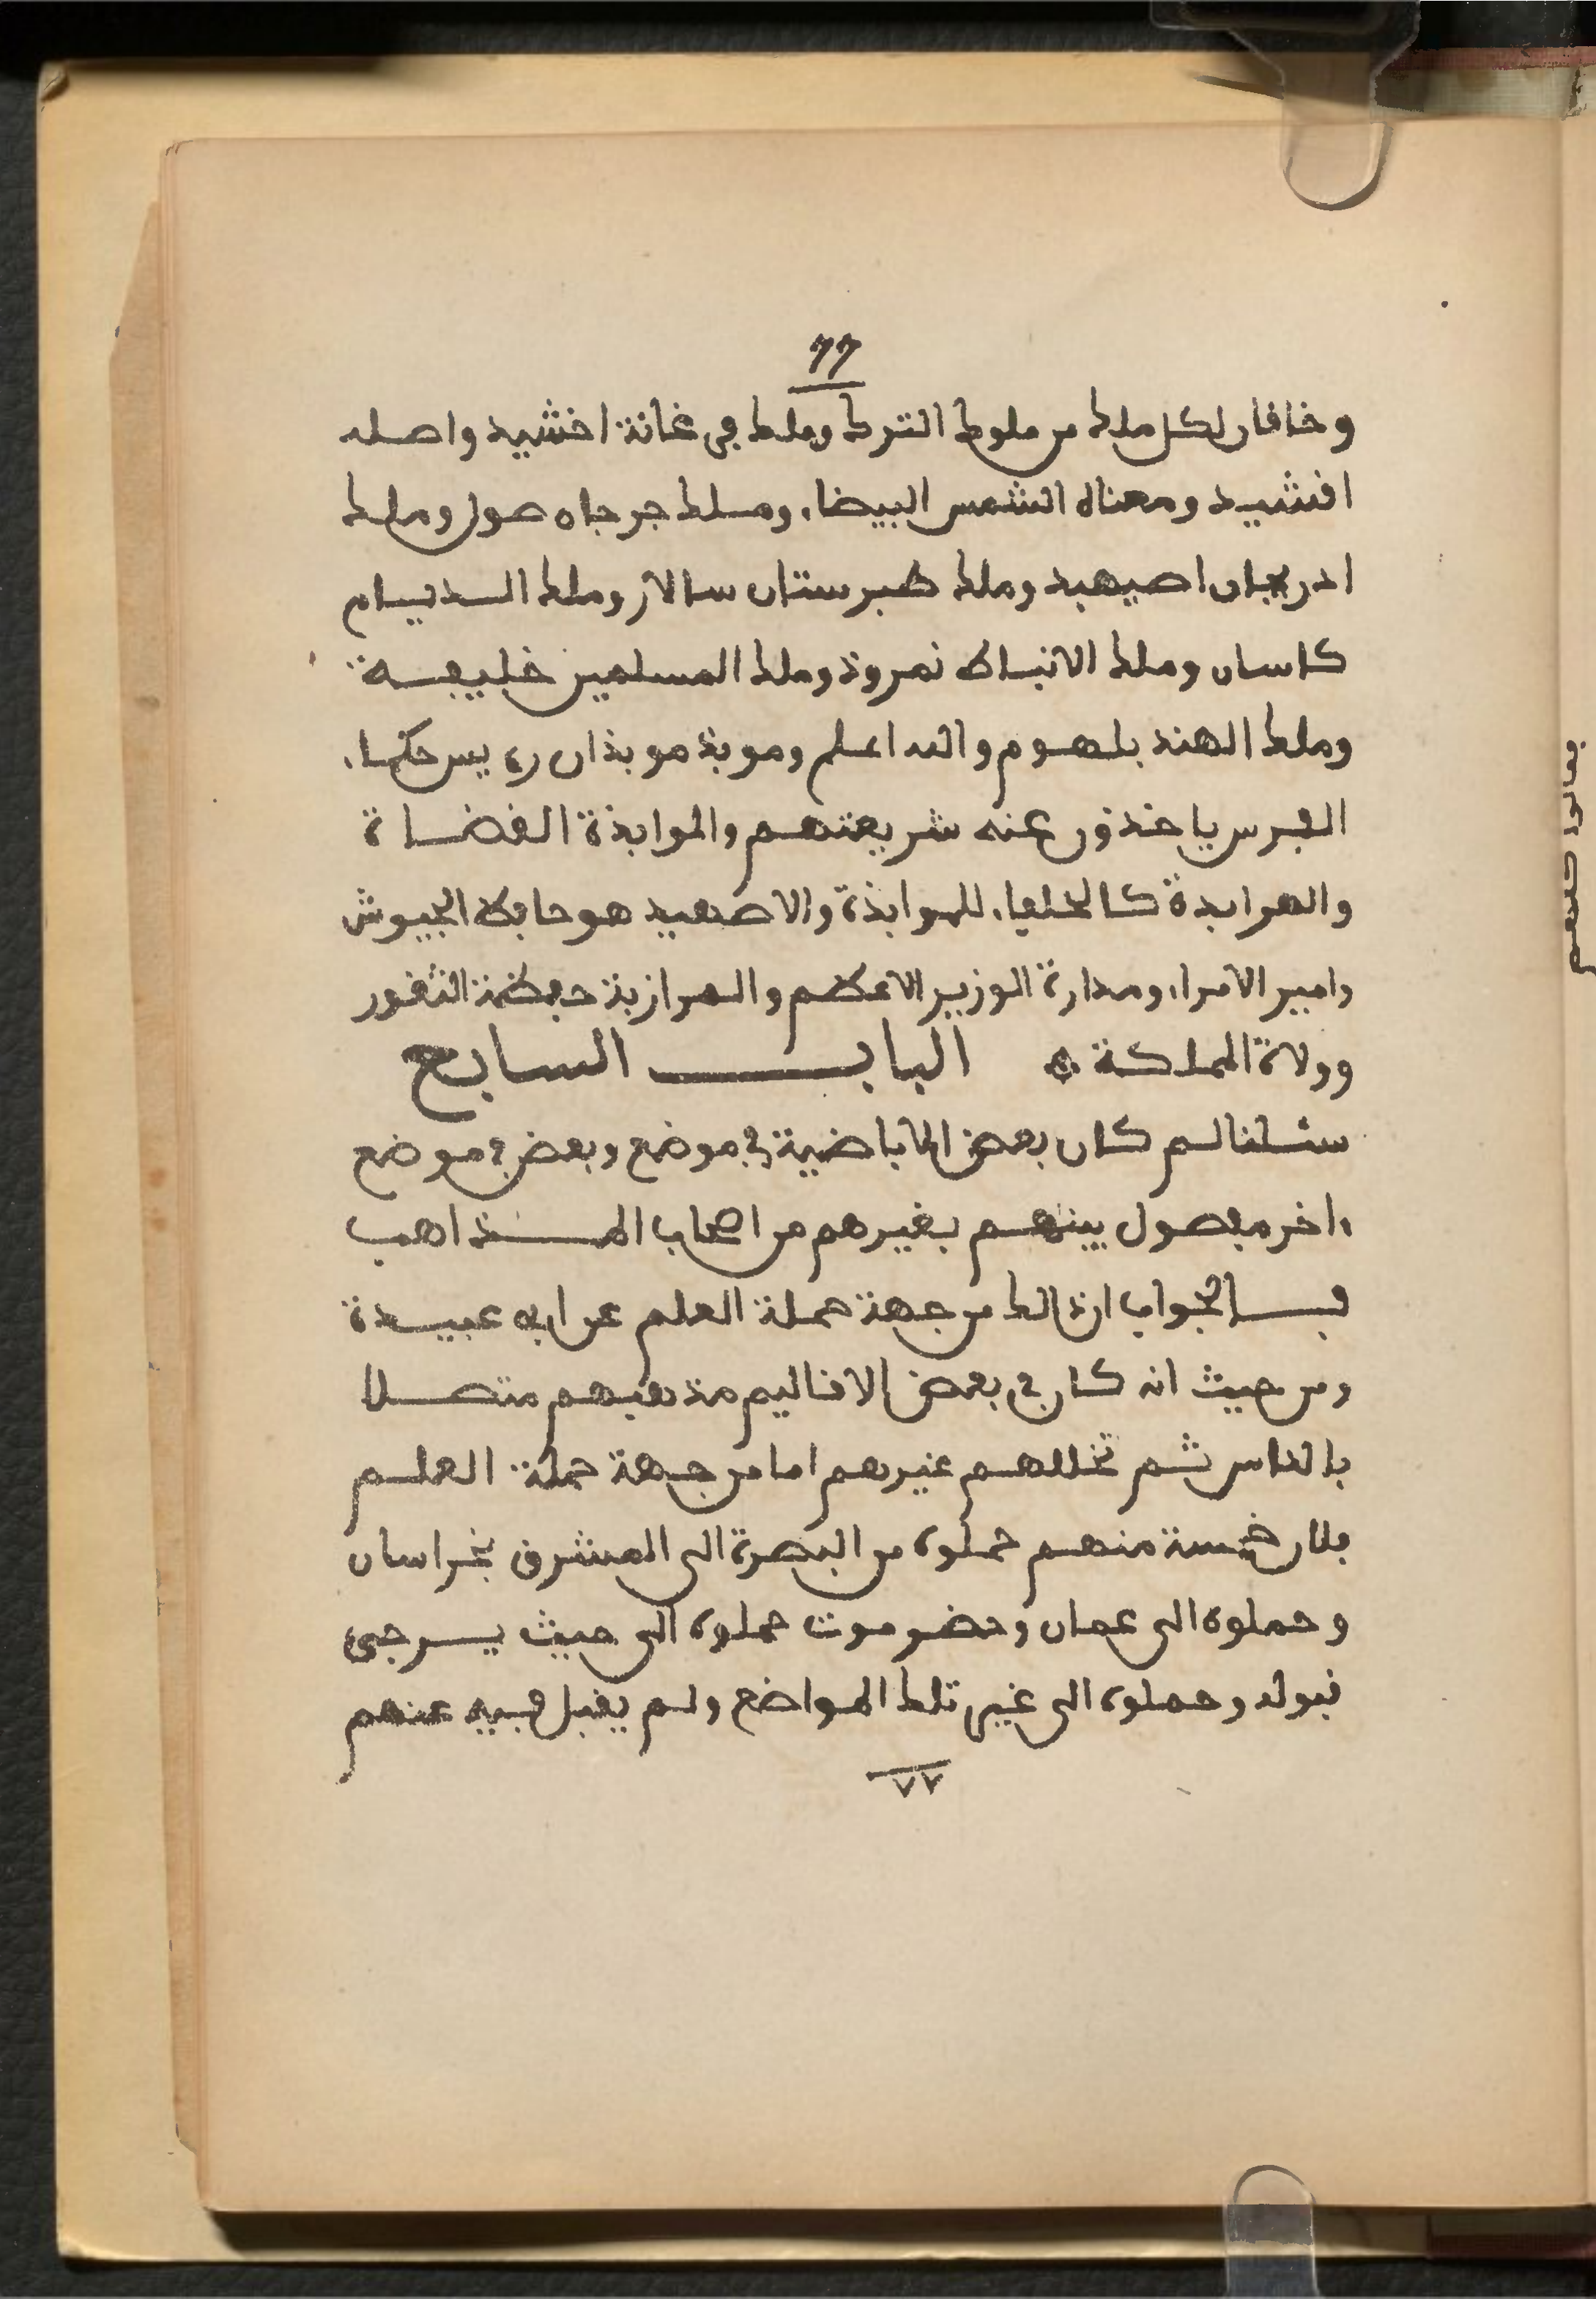 77
وخاقان لكل ملك من ملوك الترك وملك فرغانة اخشيد واصله
افشيد ومعناه الشمس البيضاء وملك جرجان صول وملك
ادربجان اصبهبد وملك طبرستان سالار وملك الديلم
كاسان وملك الانباط نمروذ وملك المسلمين خليفة
وملك الهند بلهوم والله اعلم وموبذ موبذان رئيس حكماء
الفرس ياخذون عنه شريعتهم والموابذة القضاة
والهرابدة كالخلفاء للموابذة والاصهبيد هو حافظ الجيوش
وامير الامراء ومدارة الوزير الاعظم والمرازبة حفظة الثغور
وولاة المملكة الباب السابع
سئلنا لم كان بعض الاباضية في موضع وبعض في موضع
اخر مفصول بينهم بغيرهم من اصحاب المذاهب
فالجواب ان ذالك من جهة حملة العلم عن ابي عبيدة
ومن حيث انه كان في بعض الاقاليم مذهبهم متصلا
بالناس ثم تخللهم غيرهم اما من جهة حملة العلم
فلان خمسة منهم حملوه من البصرة الى المشرق بخراسان
وحملوه الى عمان وحضرموت حملوه الى حيث يرجى
قبوله وحملوه الى غير تلك المواضع ولم يقبل فيه عنهم
٧٧
فقالوا كلهم